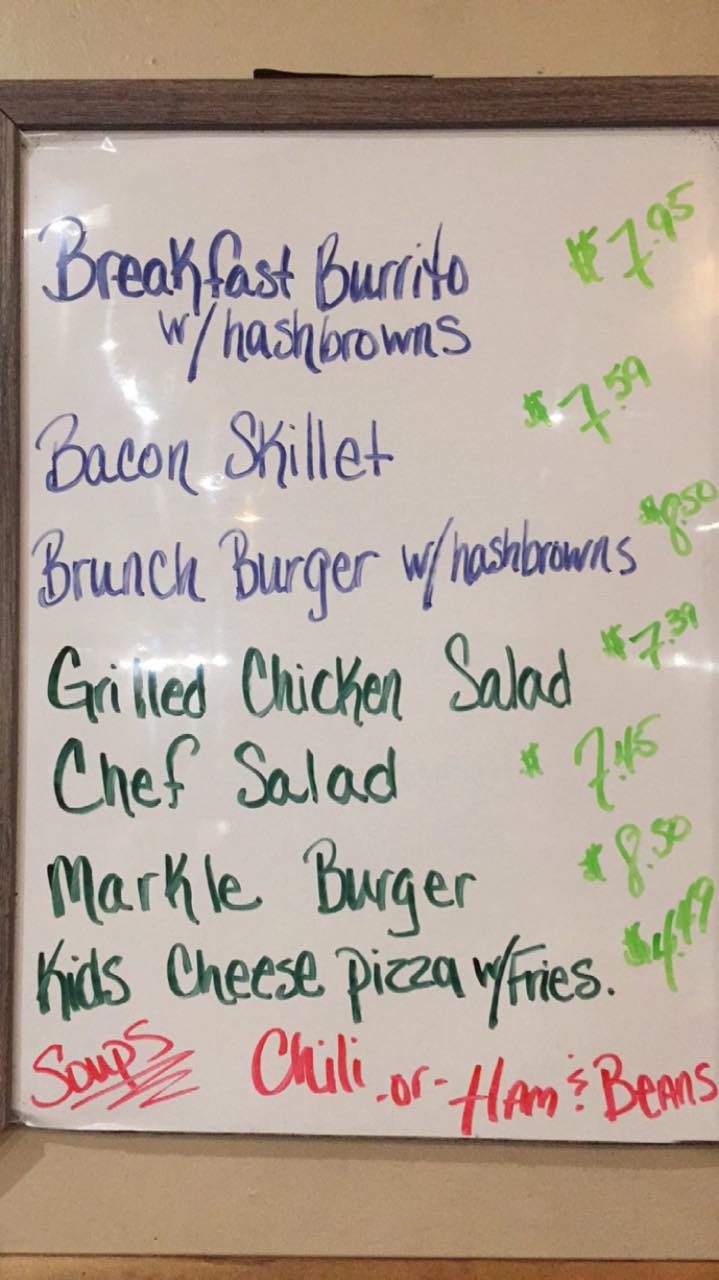 Breakfast Burrito $7.95
w/hashbrowns
Bacon Skillet $7.59
Brunch Burger w/hashbrowns $8.50
Grilled Chicken Salad $7.39
Chef Salad $7.45
Markle Burger $8.50
Kids Cheese pizza w/Fries. $4.49
Soups Chili -or- Ham & Beans